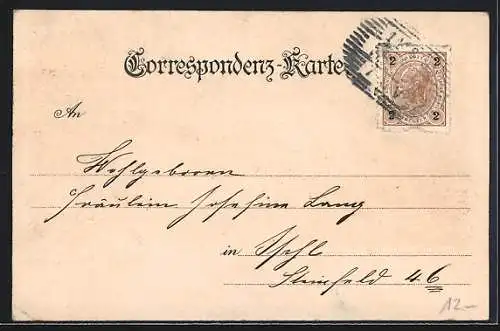 Correspondenz-Karte
2 2
2 2
An
Wohlgeboren
Fräulein Josefine Lang
in Ischl
Steinfeld 46
12-